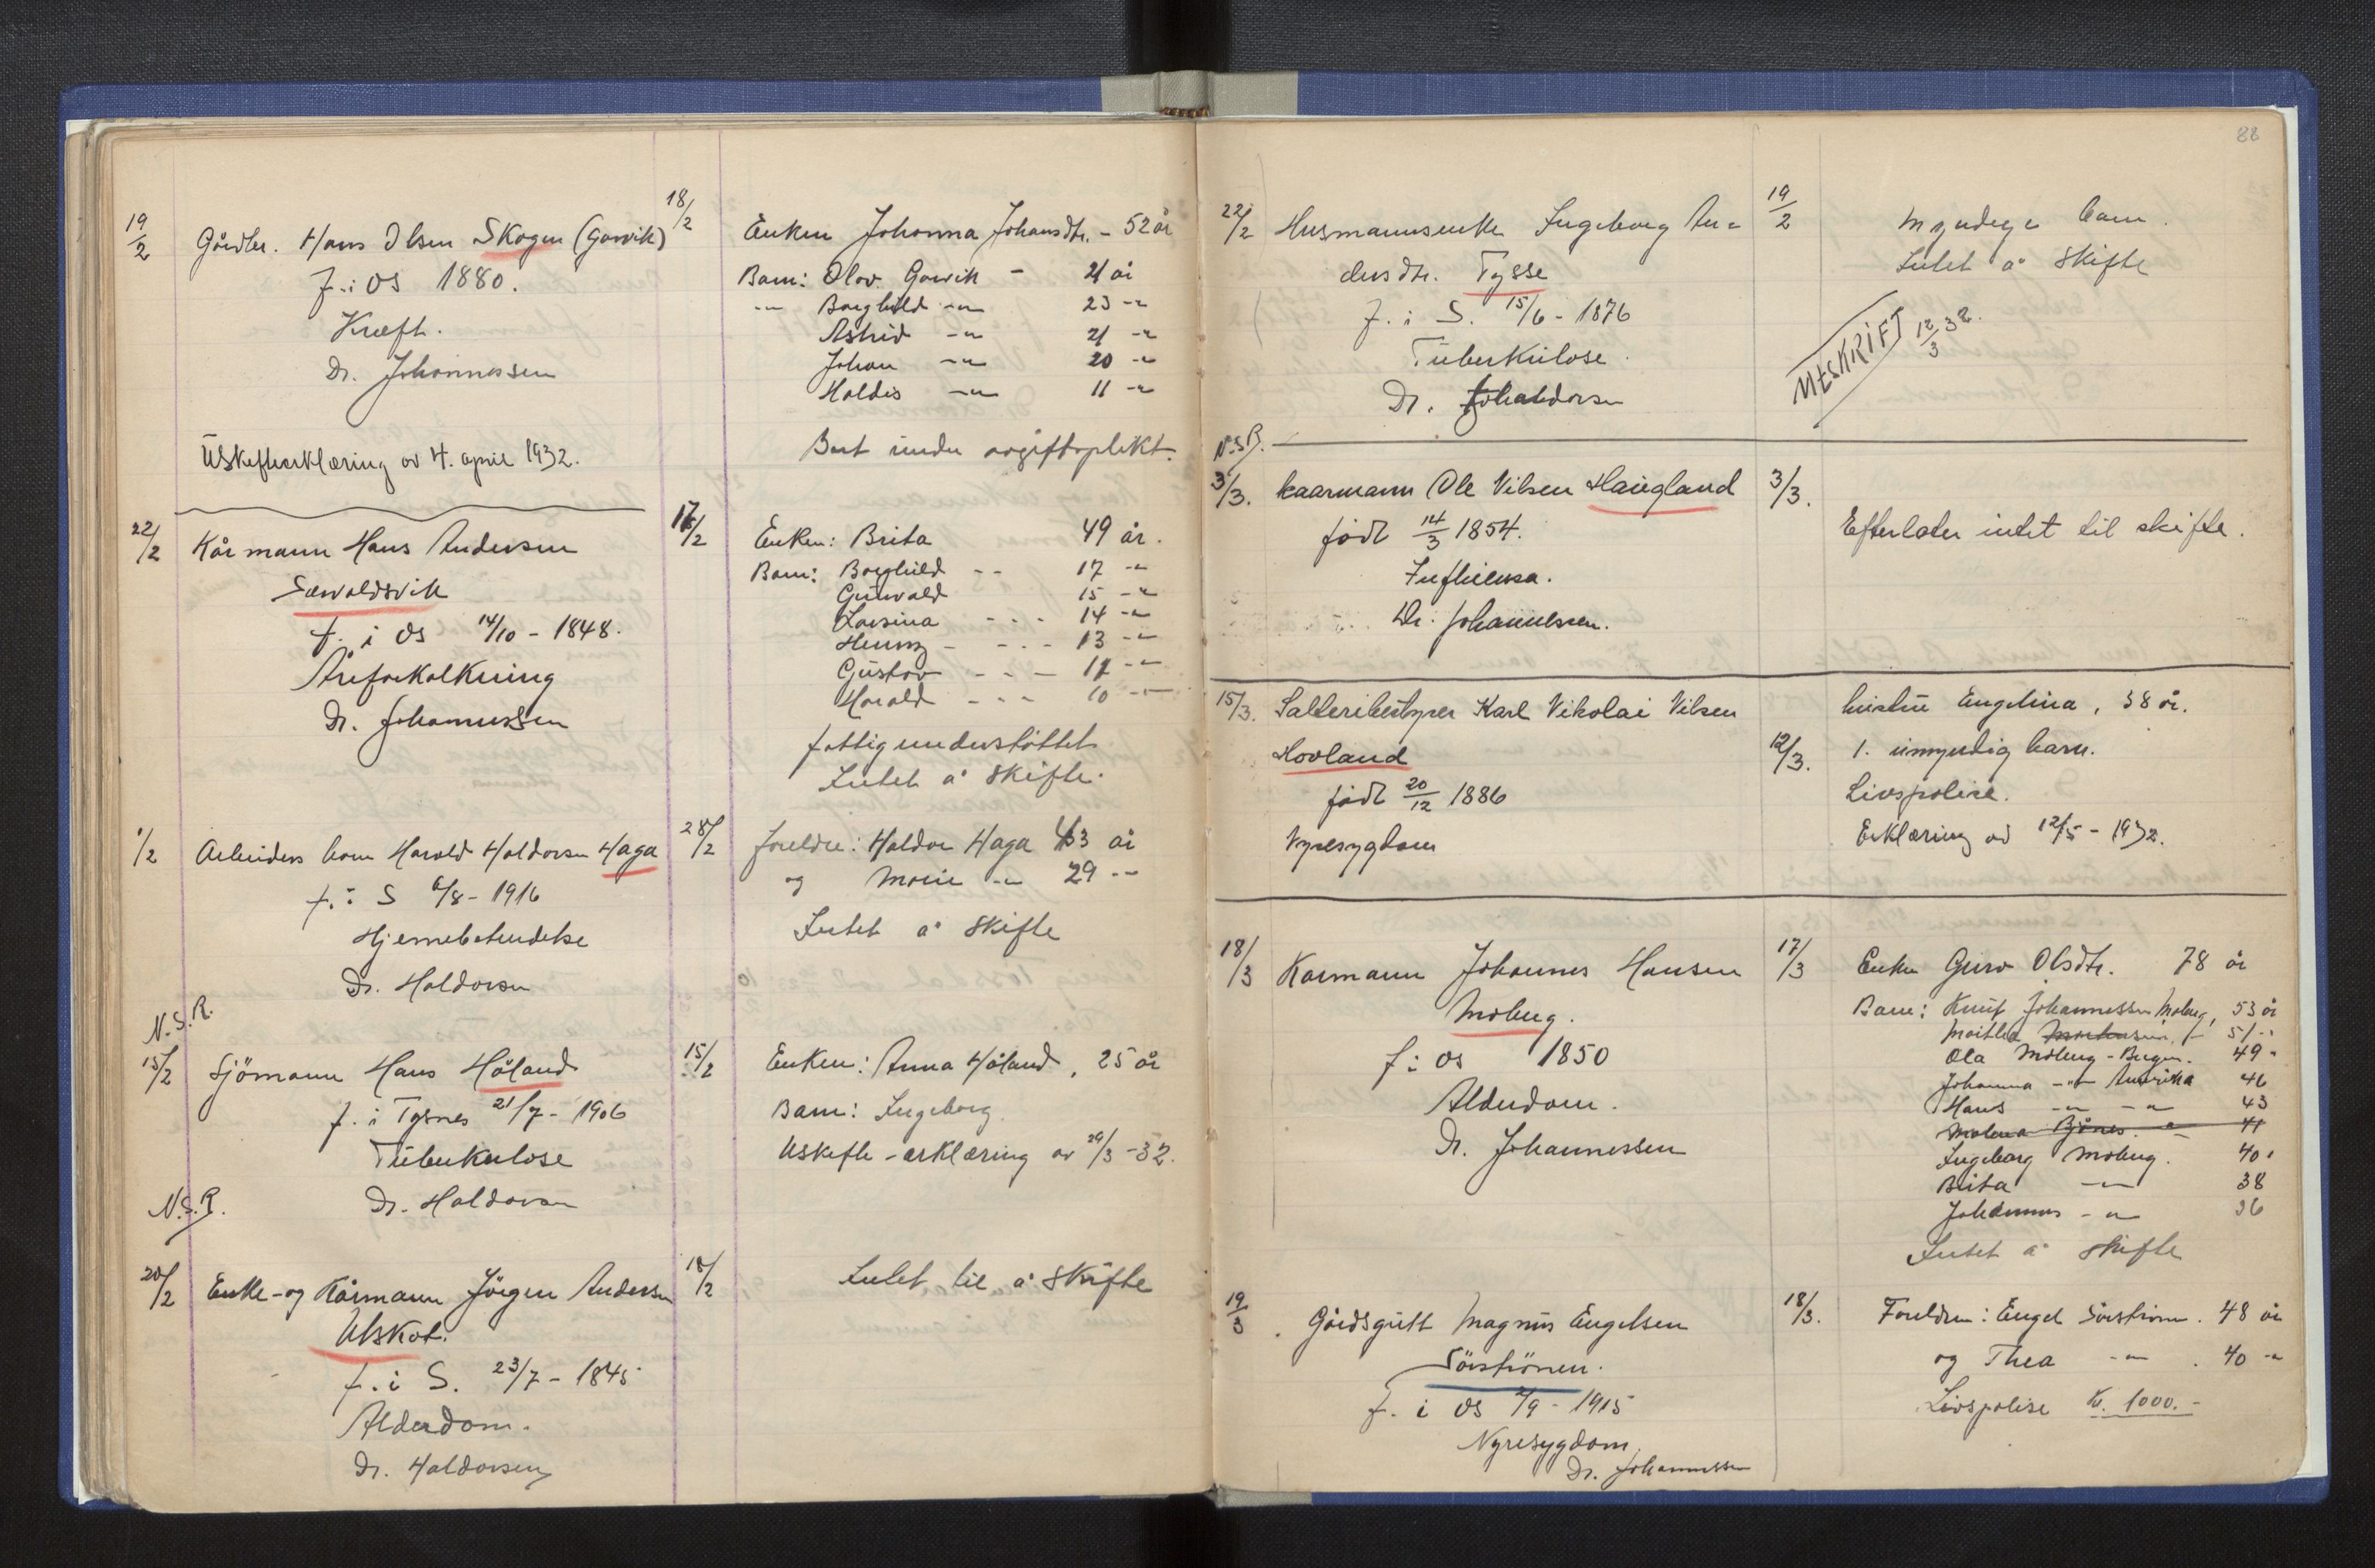 19/2 Gårdbr. Hans Olsen Skogen (Gavvik) 18/2
f. i Os 1880.
Kræft.
Dr. Johannessen
Uskifteerklæring av 4. april 1932.
Enken Johanna Johansdtr. - 52 år
Barn: Olav Gavvik - 21 år
-"- Borghild -"- 23 -"-
Astrid -"- 21 -"-
Johan -"- 20 -"-
Haldis -"- 11 -"-
Bort under avgiftsplikt.
22/2 Kårmann Hans Andersen 17/2
Sævaldsvik
f. i Os 14/10 - 1848.
Åreforkalkning
Dr. Johannessen
Enken: Brita 49 år.
Barn: Borghild - - 17 -"-
Gunvald 15 -"-
Lovsina - - - 14 -"-
Henny - - - - 13 -"-
Gustav - - - 11 -"-
Harald - - - 10 -"-
fattigunderstöttet
Intet å skifte.
1/2 Arbeiders barn Harald Haldorsen Haga 28/2
f. i S 6/8 - 1916
Hjernebetendelse
Dr. Haldorsen
foreldre: Haldor Haga 43 år
og Marie -"- 29 -"-
Intet å skifte
N.S.R.
15/2 Sjömann Hans Håland 15/2
f. i Tysnes 21/7 - 1906
Tüberkulose
Dr. Haldorsen
Enken: Anna Håland, 25 år
Barn: Ingeborg
Uskifte-erklæring av 29/3 - 32.
N.S.R.
20/2 Enke- og Kårmann Jörgen Andersen 18/2
Ulskot.
f. i S. 23/7 - 1845
Alderdom.
Dr. Haldorsen
Intet til å skifte
88
22/2 Husmannsenke Ingeborg An=
dersdtr. Tysse
f. i S. 15/6 - 1876
Tüberkulose.
Dr. Haldorsen
19/2 Myndige barn.
Intet å skifte
UTSKRIFT 12/3 32.
N.S.R.
3/3. Kaarmann Ole Nilsen Haugland 3/3.
født 14/3 1854.
Influensa.
Dr. Johannessen.
Efterlater intet til skifte.
15/3. Salteribestyrer Karl Nikolai Nilsen
Hovland 12/3.
født 20/12 1886
Nyresygdom
hustru Engelina, 38 år.
1. umyndig barn.
Livspolise.
Erklæring av 12/5 - 1932.
18/3 Kårmann Johannes Hansen 17/3
Moberg.
f. i Os 1850
Alderdom.
Dr. Johannessen
Enke Guro Olsdtr. 78 år
Barn: Knut Johannessen Moberg, 53 år
51 -"-
Ola Moberg - Bergen. 49 "
Johanna -"- Amerika 46
Hans -"- -"- 43
Malena Bjånes -"- 41
Ingeborg Moberg. 40 "
Brita -"- 38
Johannes -"- 36
Intet å skifte
19/3 Gårdsgutt Magnus Engelsen 18/3.
Sörströnen.
f. i Os /9 - 1915
Nyresygdom
Dr. Johannessen
Foreldre: Engel Sörströnen. 48 år
og Thea -"- . 40 -"-
Livspolise kr. 1000.-